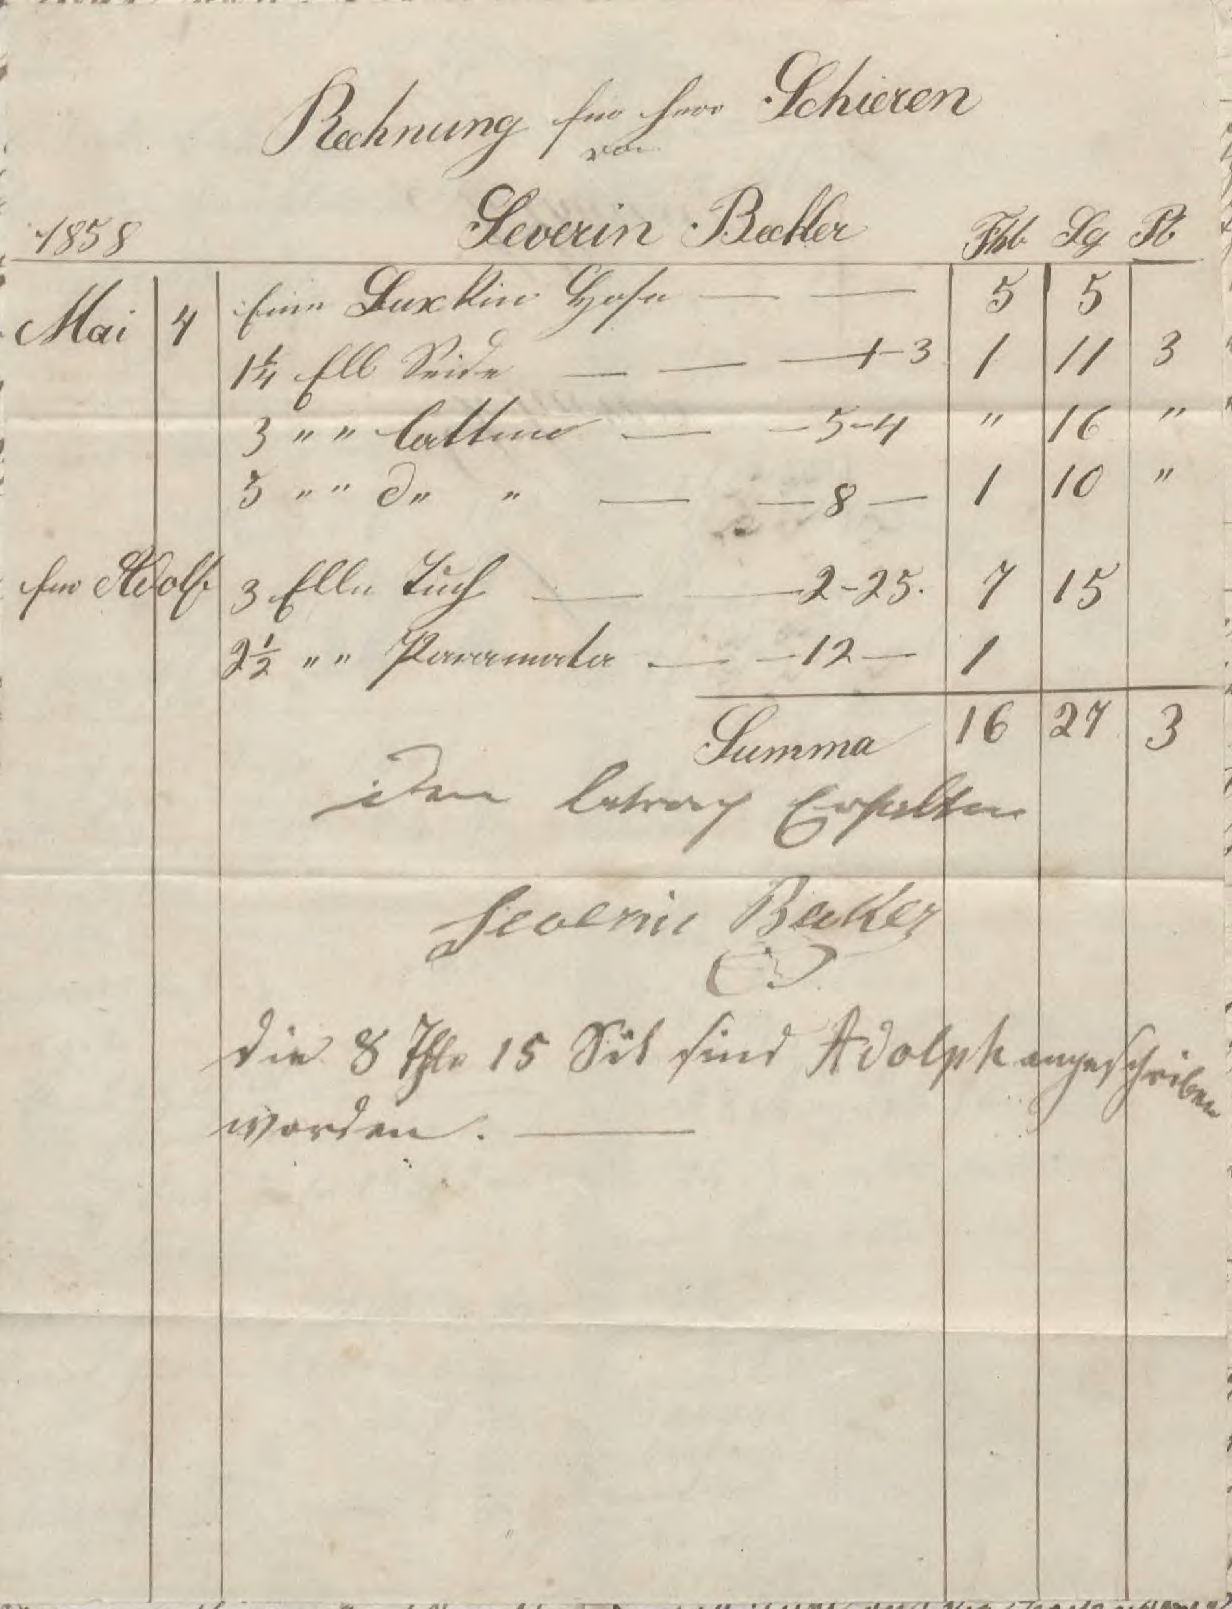 Rechnung für Herr Schieren
von
1858 Severin Becker Thl Sg Pf
Mai 4 Eine Buxkin Hose — — 5 5
1¼ Ell Seide — — — 1-3 1 11 3
3 " " Cattun — — 5-4 " 16 "
5 " " do " — — 8 — 1 10 "
für Adolf 3 Elln Tuch — — 2-25. 7 15
2½ " " Paramata — — 12 — 1
Summa 16 27 3
Den betrag Erhalten
Severin Becker
Die 8 Thlr 15 Sil sind Adolph angeschrieben
worden. —